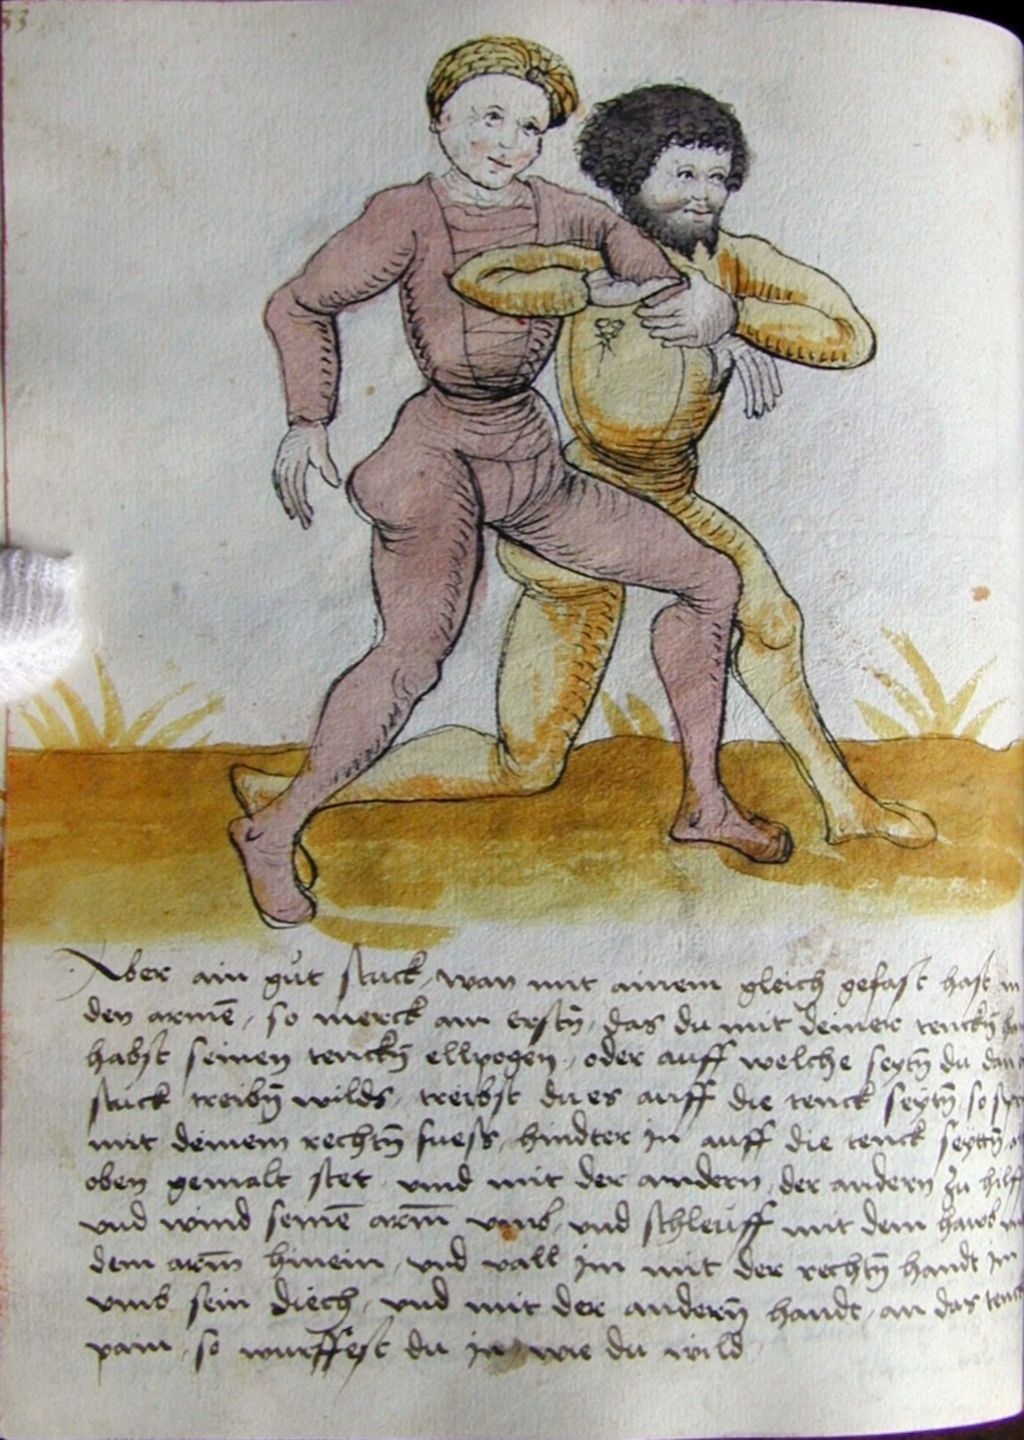 33
Aber ain gůt stuck, wan mit ainem gleich gefast hast in
den armē, so merck am erstn̄, das du mit deiner tenckn̄
habst seinen tenckn̄ ellpogen, oder auff welche seytn̄ du das
stuck treibn̄ wilds, treibst du es auff die tenck seytn̄, so
mit deinem rechtn̄ fuess, hindter in auff die tenck seyttn̄
oben gemalt stet, vnd mit der andern, der andern zu hilff
vnd wind seinē arm̄ vmb, vnd schleüff mit dem hawb
dem arm̄ hinein, vnd vall im mit der rechtn̄ handt im
vmb sein diech, vnd mit der andern̄ handt, an das tenck
pain, so wurffest du in wie du wild